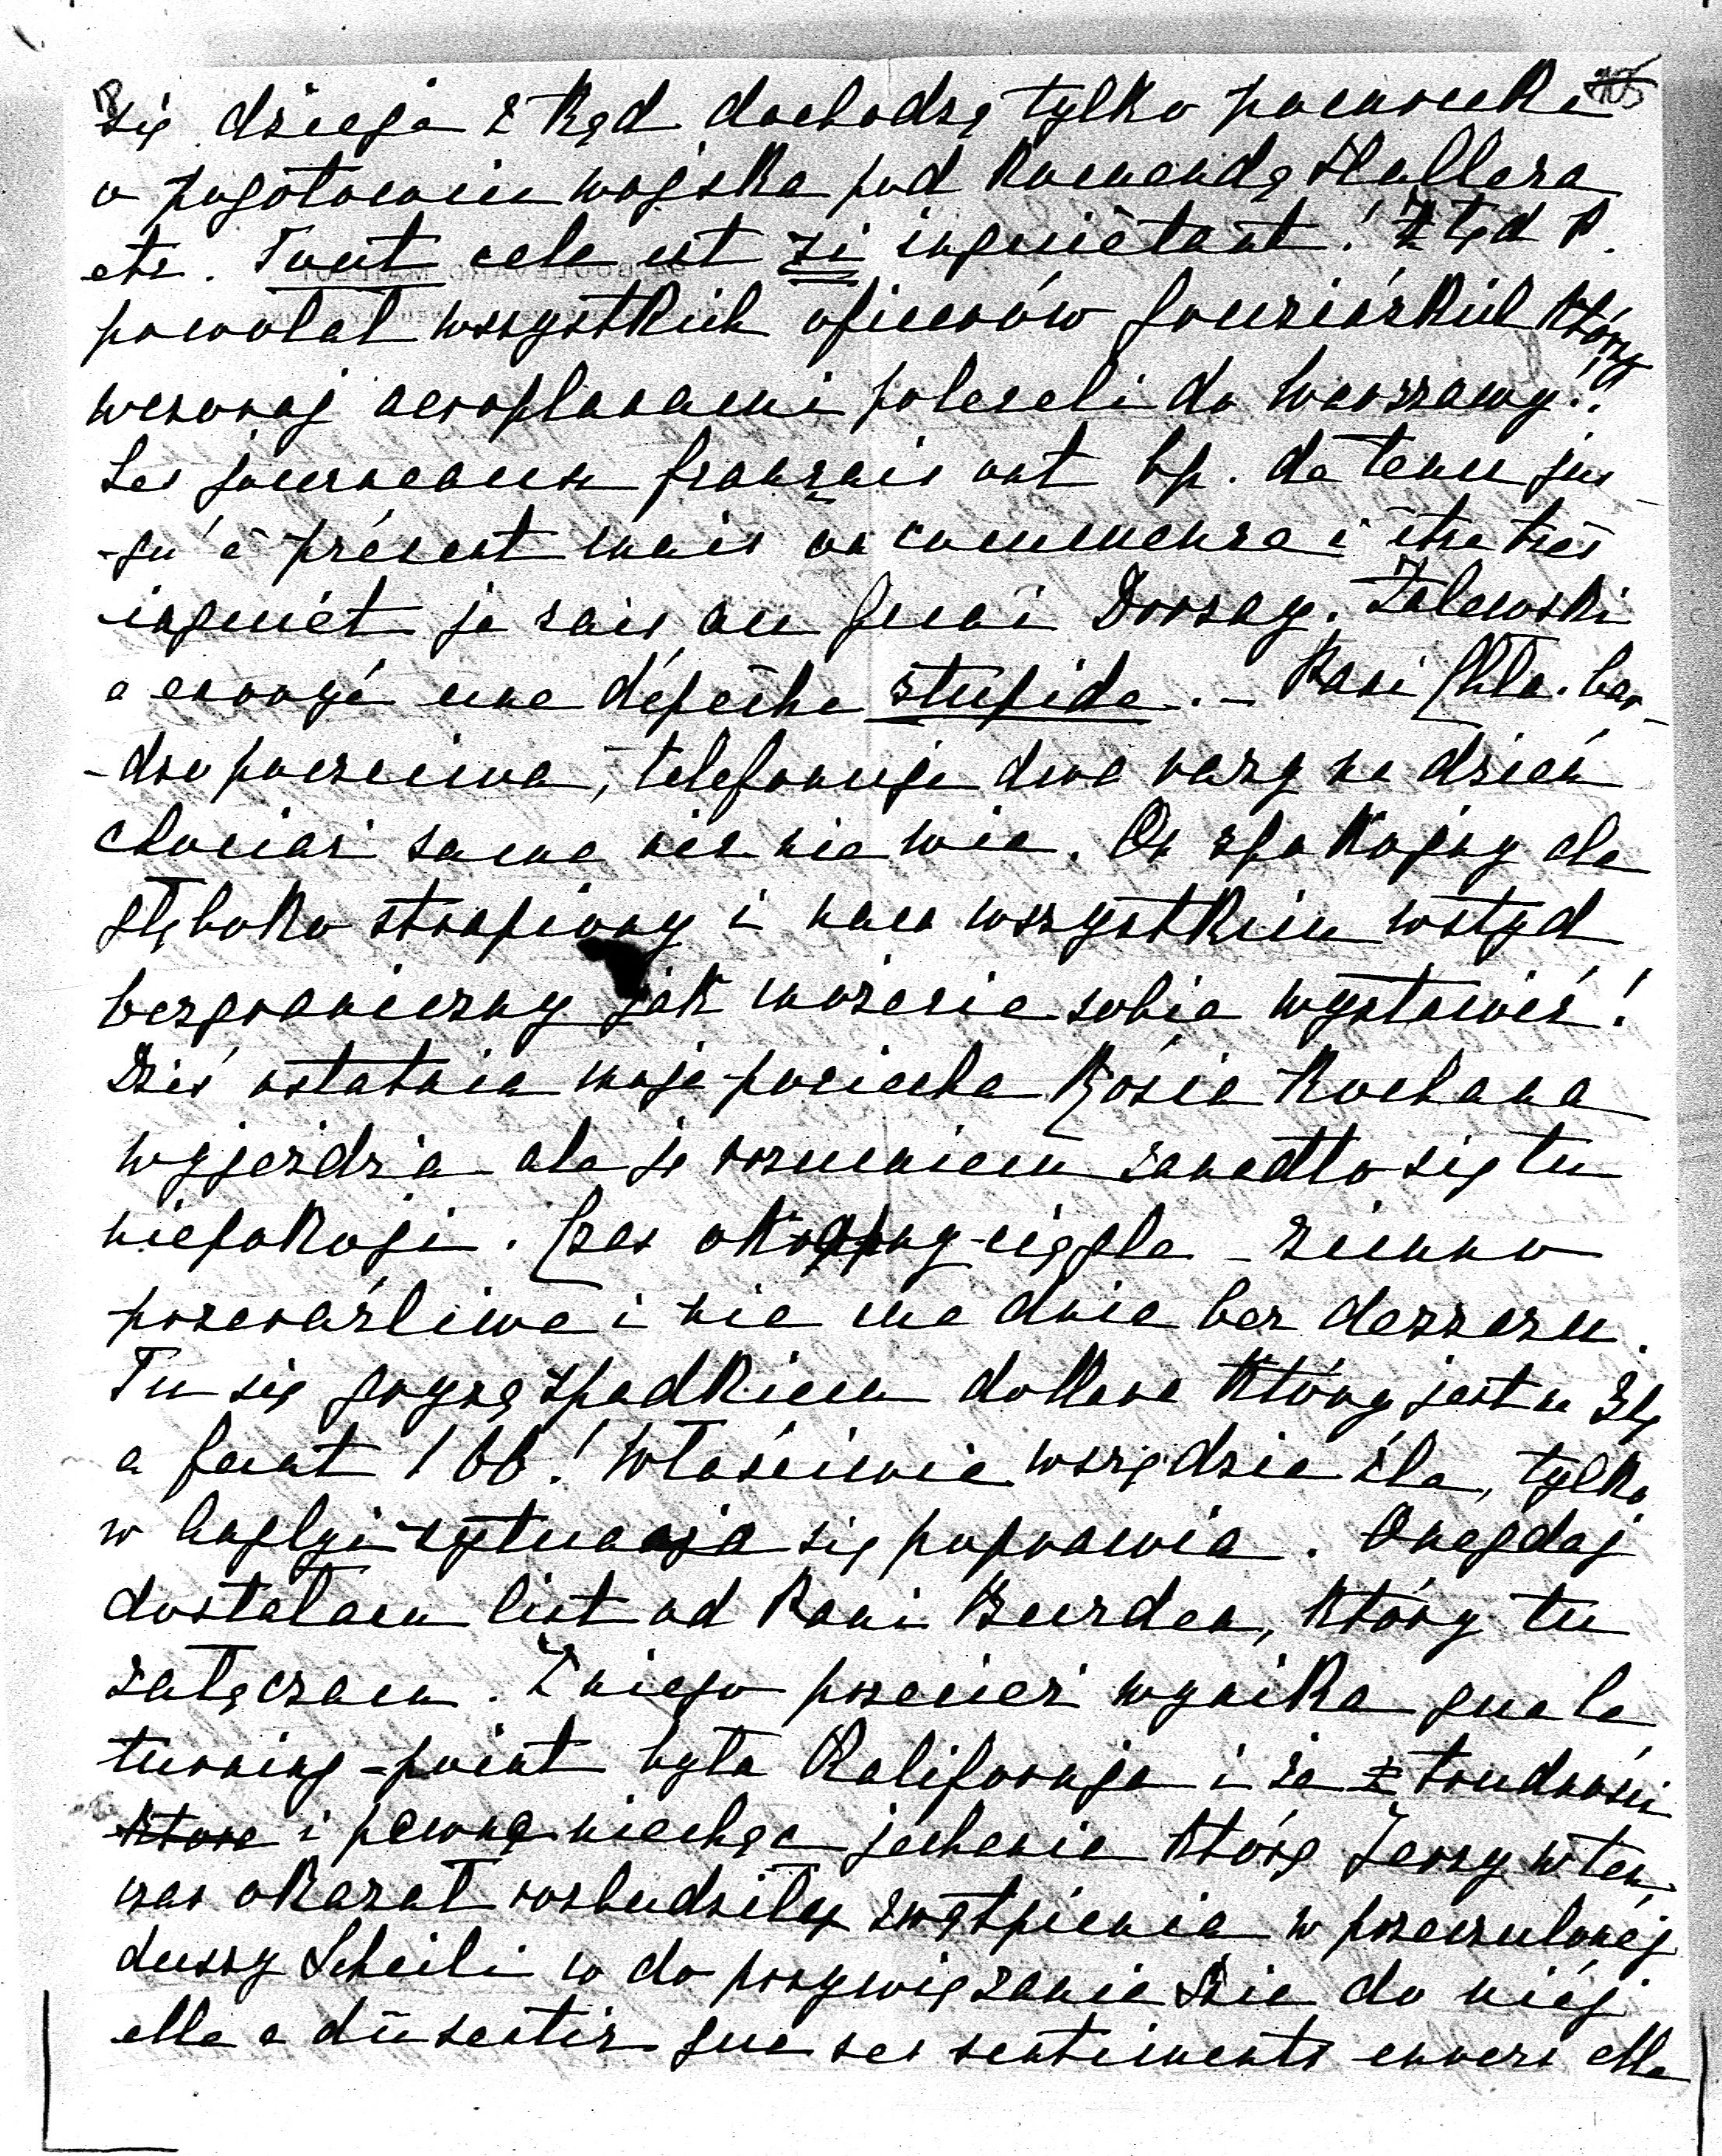 się dzieje z kąd dochodzą tylko pomruki
o pogotowiu wojska pod komendą Hallera
etc. Tout cela est si inquiétant! Z tąd P.
powołał wszystkich oficerów francuskich którzy
wczoraj aeroplanami polecieli do Warszawy!!
Les journeaux français ont bp. de tenu jus-
-qu'à présent mais on commence à être très
inquiét je sais au Quai Dorsay. Zalewski
a envoyé une dépêche stupide. – Pani Chła. bar-
-dzo poczciwa, telefonuje dwa razy na dzień
chociaż sama nic nie wie. On spokojny ale
głęboko strapiony i nam wszystkim wstyd
bezgraniczny jak możecie sobie wystawić!
Dziś ostatnia moja pociecha Rózia kochana
wyjeżdża ale ją rozumiem zanadto się tu
niepokoji. Czas okropny ciągle – zimno
przeraźliwe i nie ma dnia bez deszczu.
Tu się gryzą spadkiem dollara który jest na
a funt 166! Właściwie wszędzie źle, tylko
w Anglji sytuacja się poprawia. Onegdaj
dostałam list od Pani Burden, który tu
załączam. Z niego przecież wynika que le
turning-point była Kalifornja i że z trudności
i pewną niechęć jechania którą Jerzy wten-
czas okazał rozbudziły zwątpienia w przeczulonéj
duszy Scheili co do przywiązania Się do niéj
elle a dû sentir que ses sentiments envers elle